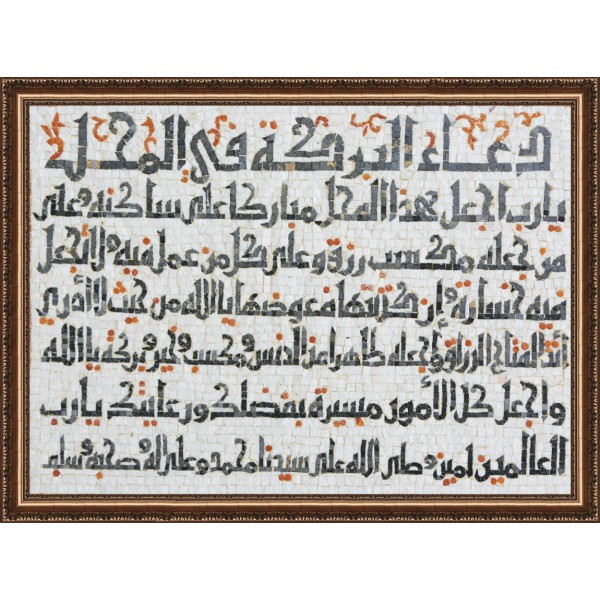 دعاء البركة في المحل
يا رب اجعل هذا المحل مباركا على ساكنه و على
من جعله مكسب رزق و على كل من عمل فيه و لا تجعل
فيه خسارة و إن كتبتها معوضها يا الله من حيث لا أدري
أنت الفتاح الرزاق و اجعله طاهرا عن الدنس و مكسب و خير و بركة يا الله
و اجعل كل الأمور ميسرة بفضلك و رعايتك يا رب
العالمين امين و صلى الله على سيدنا محمد و على اله و صحبه و سلم